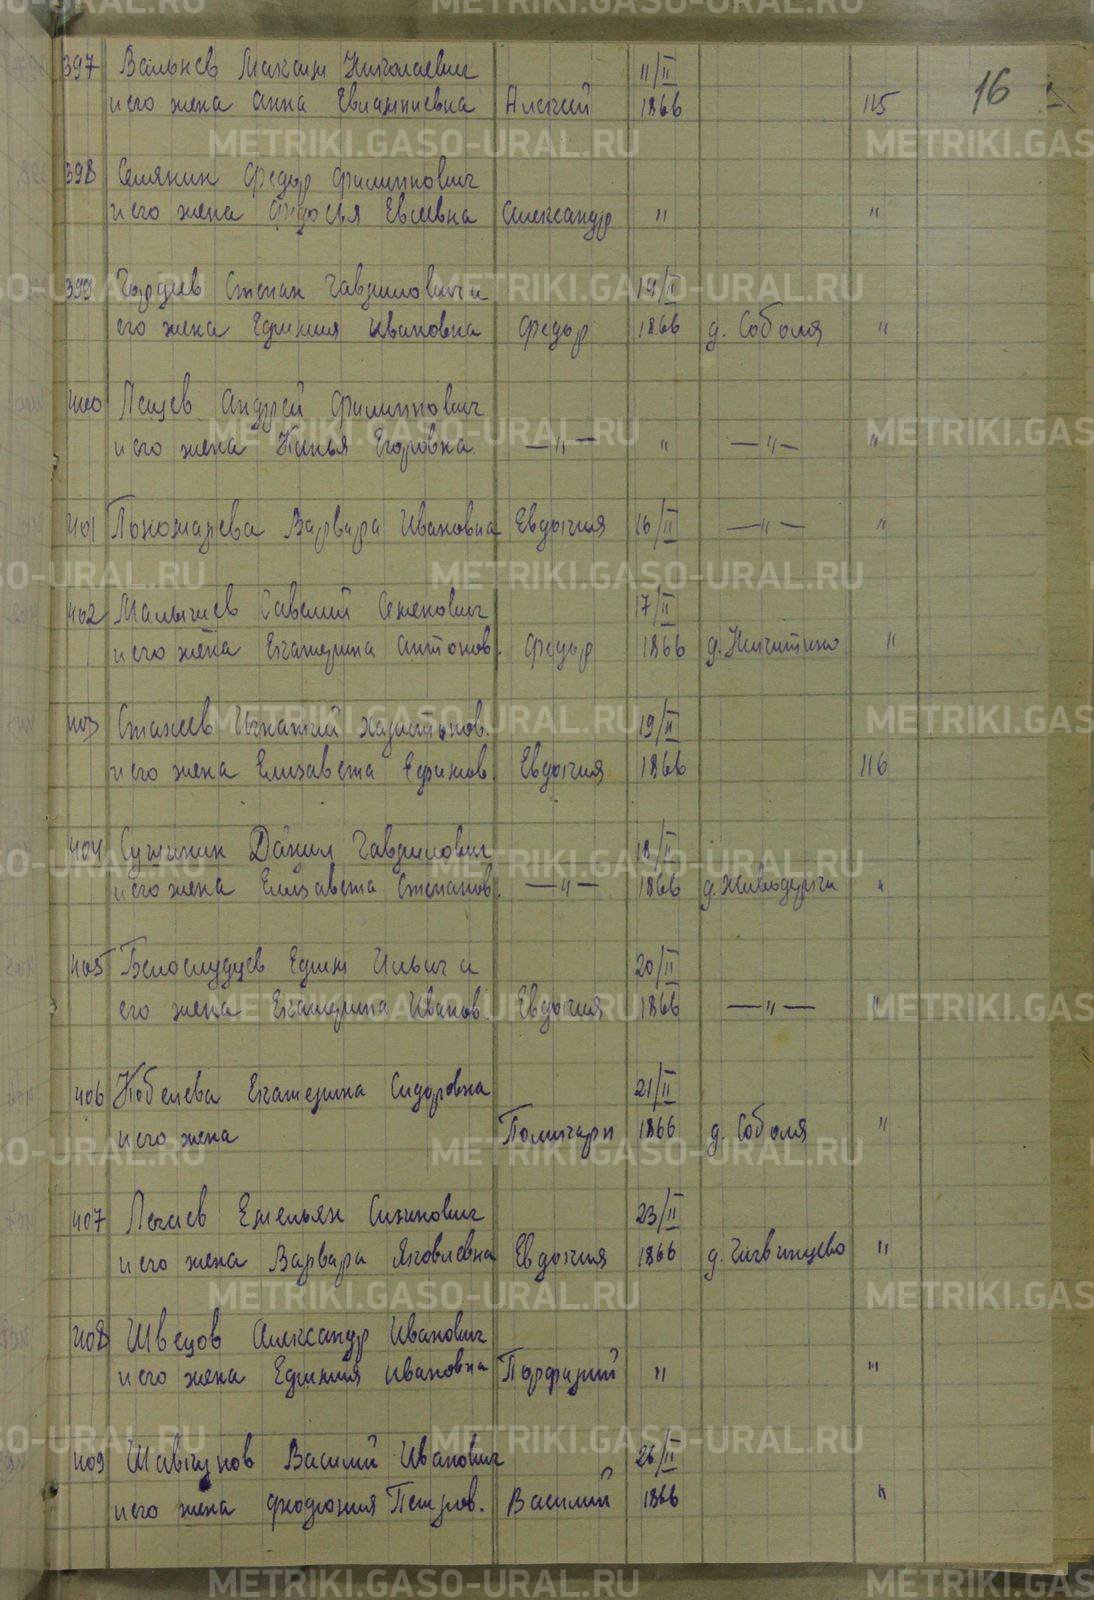 16
397 Вальнев Максим Николаевич 11/II
и его жена Анна Евлампиевна Алексей 1866 115
398 Семянин Федор Филиппович
и его жена Федосья Евсеевна Александр " "
399 Гордеев Степан Гаврилович и 19/II
его жена Ефимия Ивановна Федор 1866 д. Соболя "
400 Лещев Андрей Филиппович
и его жена Егоровна — " — " — " — "
401 Пономарева Варвара Ивановна Евдокия 16/II — " — "
402 Малышев Савелий Семенович 17/II
и его жена Екатерина Антонов. Федор 1866 д. Никитино "
403 Стахеев Игнатий Харитонов. 19/II
и его жена Елизавета Ефимов. Евдокия 1866 116
404 Сушинин Данил Гаврилович 18/II
и его жена Елизавета Степанов. — " — 1866 "
405 Белослудцев Ефим Ильич и 20/II
его жена Екатерина Иванов. Евдокия 1866 — " — "
406 Кобелева Екатерина Сидоровна 21/II
и его жена Поликарп 1866 д. Соболя "
407 Легаев Емельян 23/II
и его жена Варвара Яковлевна Евдокия 1866 д. Чигвинцево "
408 Швецов Александр Иванович
и его жена Ефимия Ивановна Порфирий " "
409 Шавкунов Василий Иванович 26/II
и его жена Феодосия Петров. Василий 1866 "
METRIKI.GASO-URAL.RU